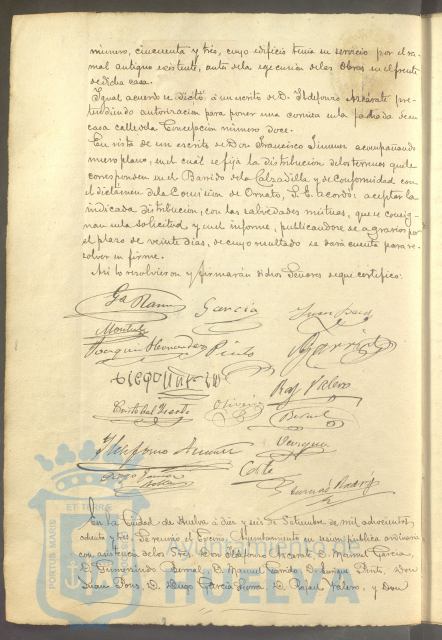 número, cincuenta y tres, cuyo edificio tenia su servicio por el ra-
mal antiguo existente, antes de la egecucion de las obras en el frente
de dicha casa.
Igual acuerdo se dictó á un escrito de D. Ildefonso Azcárate pre-
tendiendo autorizacion para poner una cornisa en la fachada de su
casa calle de la Concepcion número doce.
En vista de un escrito de Don Francisco Jimenez acompañando
nuevo plano, en el cuál se fija la distribución de los terrenos que le
corresponden en el Barrio de la Calzadilla y de conformidad con
el dictámen de la Comision de Ornato, S. E. acordó: aceptar la
indicada distribucion, con las salvedades mútuas, que se consig-
nan en la solicitud, y en el informe, publicandose
el plazo de veinte dias, de cuyo resultado se dará cuenta para re-
solver en firme.
Asi lo resolvieron y firmarán dichos Señores de que certifico:
Garcia
Juan Pons
Joaquin Hernandez Pinto
Garrido
Raf Valero
Cristobal
Oliveira
Bernal
Ildefonso
Diego Garcia
En la Ciudad de Huelva á diez y seis de Setiembre de mil ochocientos
ochenta y tres se reunió el Excmo. Ayuntamiento en sesion publica ordinaria
con asistencia de los Sres. Don Ildefonso Vicente D. Manuel Garcia,
D. Gumersindo Bernal, D. Manuel Garrido D. Enrique Pinto, Don
Juan Pons, D. Diego Garcia D. Rafael Valero, y Don
ET TERRÆ
PORTUS MARIS
Ayuntamiento de
HUELVA